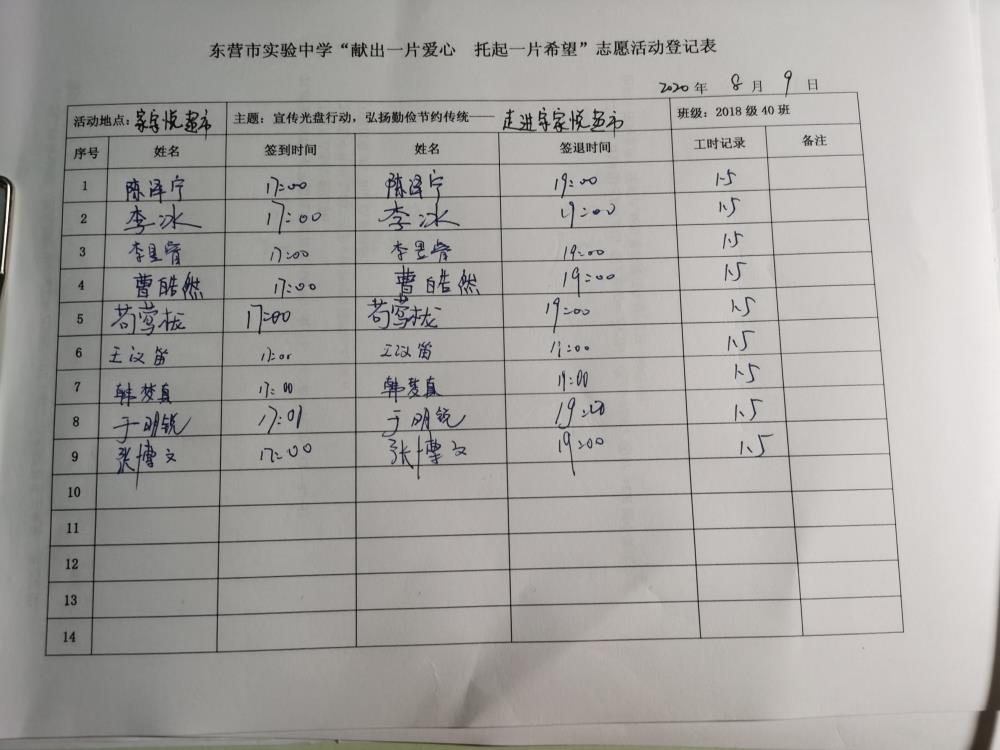 东营市实验中学“献出一片爱心 托起一片希望”志愿活动登记表
2020 年 8 月 9 日
活动地点：家家悦超市 主题：宣传光盘行动，弘扬勤俭节约传统—— 走进家家悦超市 班级：2018 级 40 班
序号 姓名 签到时间 姓名 签退时间 工时记录 备注
1 陈泽宁 17:00 陈泽宁 19:00 1.5
2 李冰 17:00 李冰 19:00 1.5
3 17:00 19:00 1.5
4 曹皓然 17:00 曹皓然 19:00 1.5
5 苟莺栊 17:00 苟莺栊 19:00 1.5
6 王汉笛 王汉笛 1.5
7 韩梦真 17:00 韩梦真 19:00 1.5
8 于明锐 17:01 于明锐 1.5
9 张博文 17:00 张博文 19:00 1.5
10
11
12
13
14